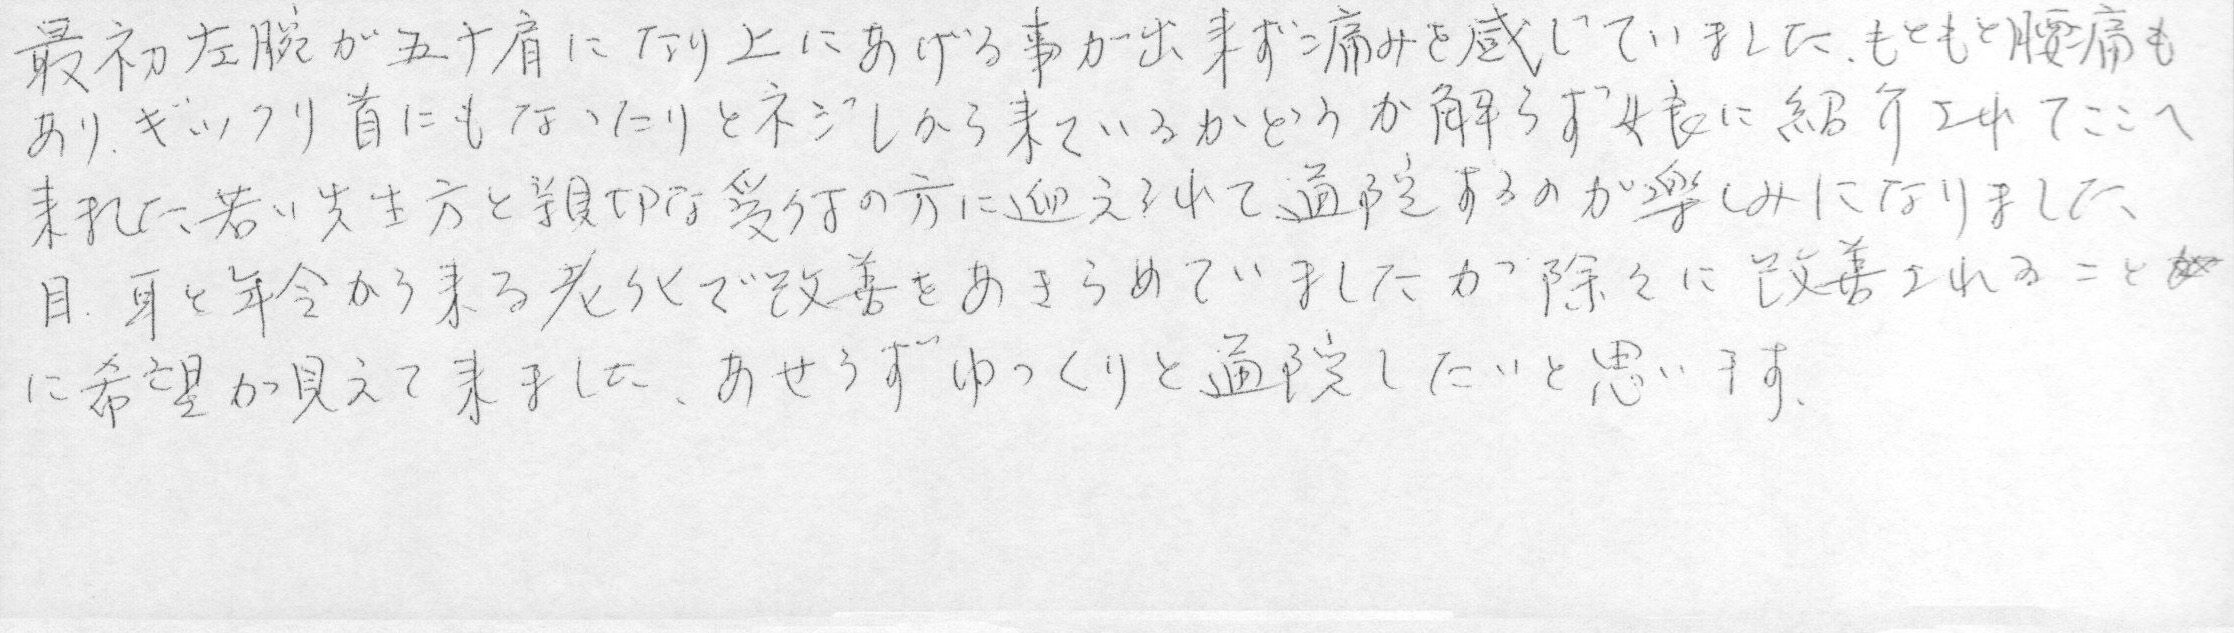 最初左腕が五十肩になり上にあげる事が出来ず痛みを感じていました、もともと腰痛も
あり、ギックリ首にもなったりとネジしから来ているかどうか解らず娘に紹介されてここへ
来ました、若い先生方と親切な受付の方に迎えられて通院するのが楽しみになりました、
目、耳と年令から来る老化で改善をあきらめていましたが除々に改善されること
に希望が見えて来ました、あせらずゆっくりと通院したいと思います、